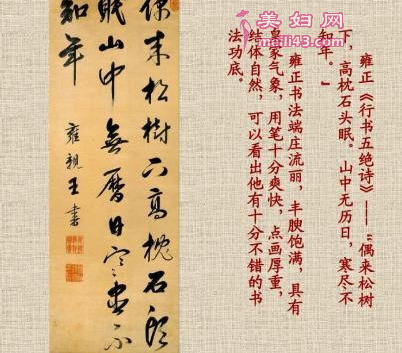 美妇网
meili43.com
雍正《行书五绝诗》——“偶来松树
下，高枕石头眠。山中无历日，寒尽不
知年。”
雍正书法端庄流丽，丰腴饱满，具有
皇家气象，用笔十分爽快，点画厚重，
结体自然，可以看出他有十分不错的书
法功底。
偶來松樹下高枕石頭
眠山中無曆日寒盡不
知年
雍親王書